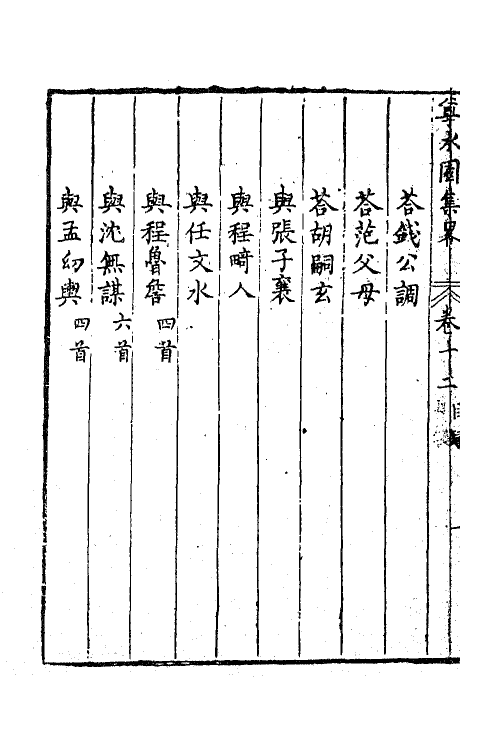 集畧 卷十二 目
荅錢公調
荅范父母
荅胡嗣玄
與張子襄
與程疇人
與任文水
與程魯詹 四首
與沈無謀 六首
與孟幼輿 四首